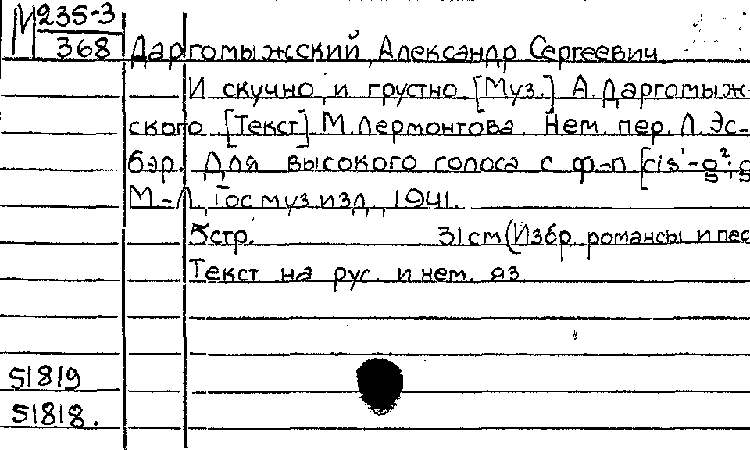 М 235-3
368
Даргомыжский, Александр Сергеевич
И скучно, и грустно. [Муз.] А. Даргомыж-
ского. [Текст] М. Лермонтова. Нем. пер. Л. Эс-
бэр. Для высокого голоса с ф-п [cis¹-g²,
М.-Л., Гос. муз. изд., 1941.
5 стр. 31 см (Избр. романсы и
Текст на рус. и нем. яз
51819
51818.